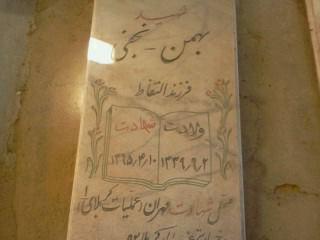 شهید
بهمن - نجفی
فرزند التفاط
ولادت شهادت
۱۳۳۹٫۹٫۲ ۱۳۶۵٫۴٫۱۰
محل شهادت مهران (عملیات کربلای ۱